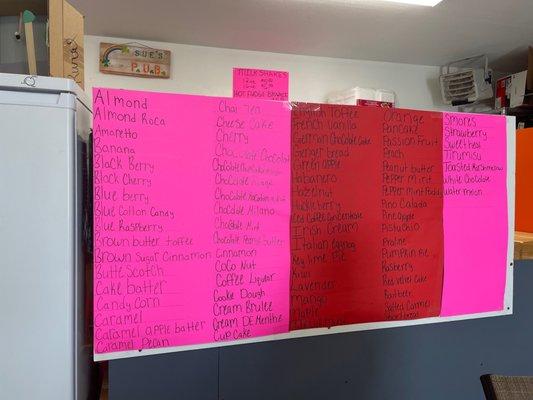 SUE'S
P.U.B.
MILKSHAKES
HOT FUDGE BROWNIE
Almond
Almond Roca
Amaretto
Banana
Black Berry
Black Cherry
Blue berry
Blue Cotton Candy
Blue Raspberry
Brown butter toffee
Brown Sugar Cinnamon
Butte Scotch
Cake batter
Candy Corn
Caramel
Caramel apple batter
Caramel Pecan
Chai Tea
Cheese Cake
Cherry
Chocolate Chocolate
Chocolate
Chocolate
Chocolate
Chocolate Milano
Chocolate Mint
Chocolate Peanut butter
Cinnamon
Coco Nut
Coffee Liquor
Cookie Dough
Cream Brulee
Cream DE Menthe
Cup Cake
English Toffee
French Vanilla
German Chocolate Cake
Ginger bread
Green apple
Habanero
Hazelnut
Huckleberry
Iced Coffee Concentrate
Irish Cream
Italian Eggnog
Key lime Pie
Kiwi
Lavender
Mango
Maple
Orange
Pancake
Passion Fruit
Peach
Peanut butter
Pepper Mint
Pepper Mint Paddy
Pina Colada
Pine Apple
Pistachio
Praline
Pumpkin Pie
Rasberry
Red velvet Cake
Rootbeer
Salted Carmel
Short bread
Smores
Strawberry
Sweet heat
Tirumisu
Toasted Marshmallow
White Chocolate
Water melon